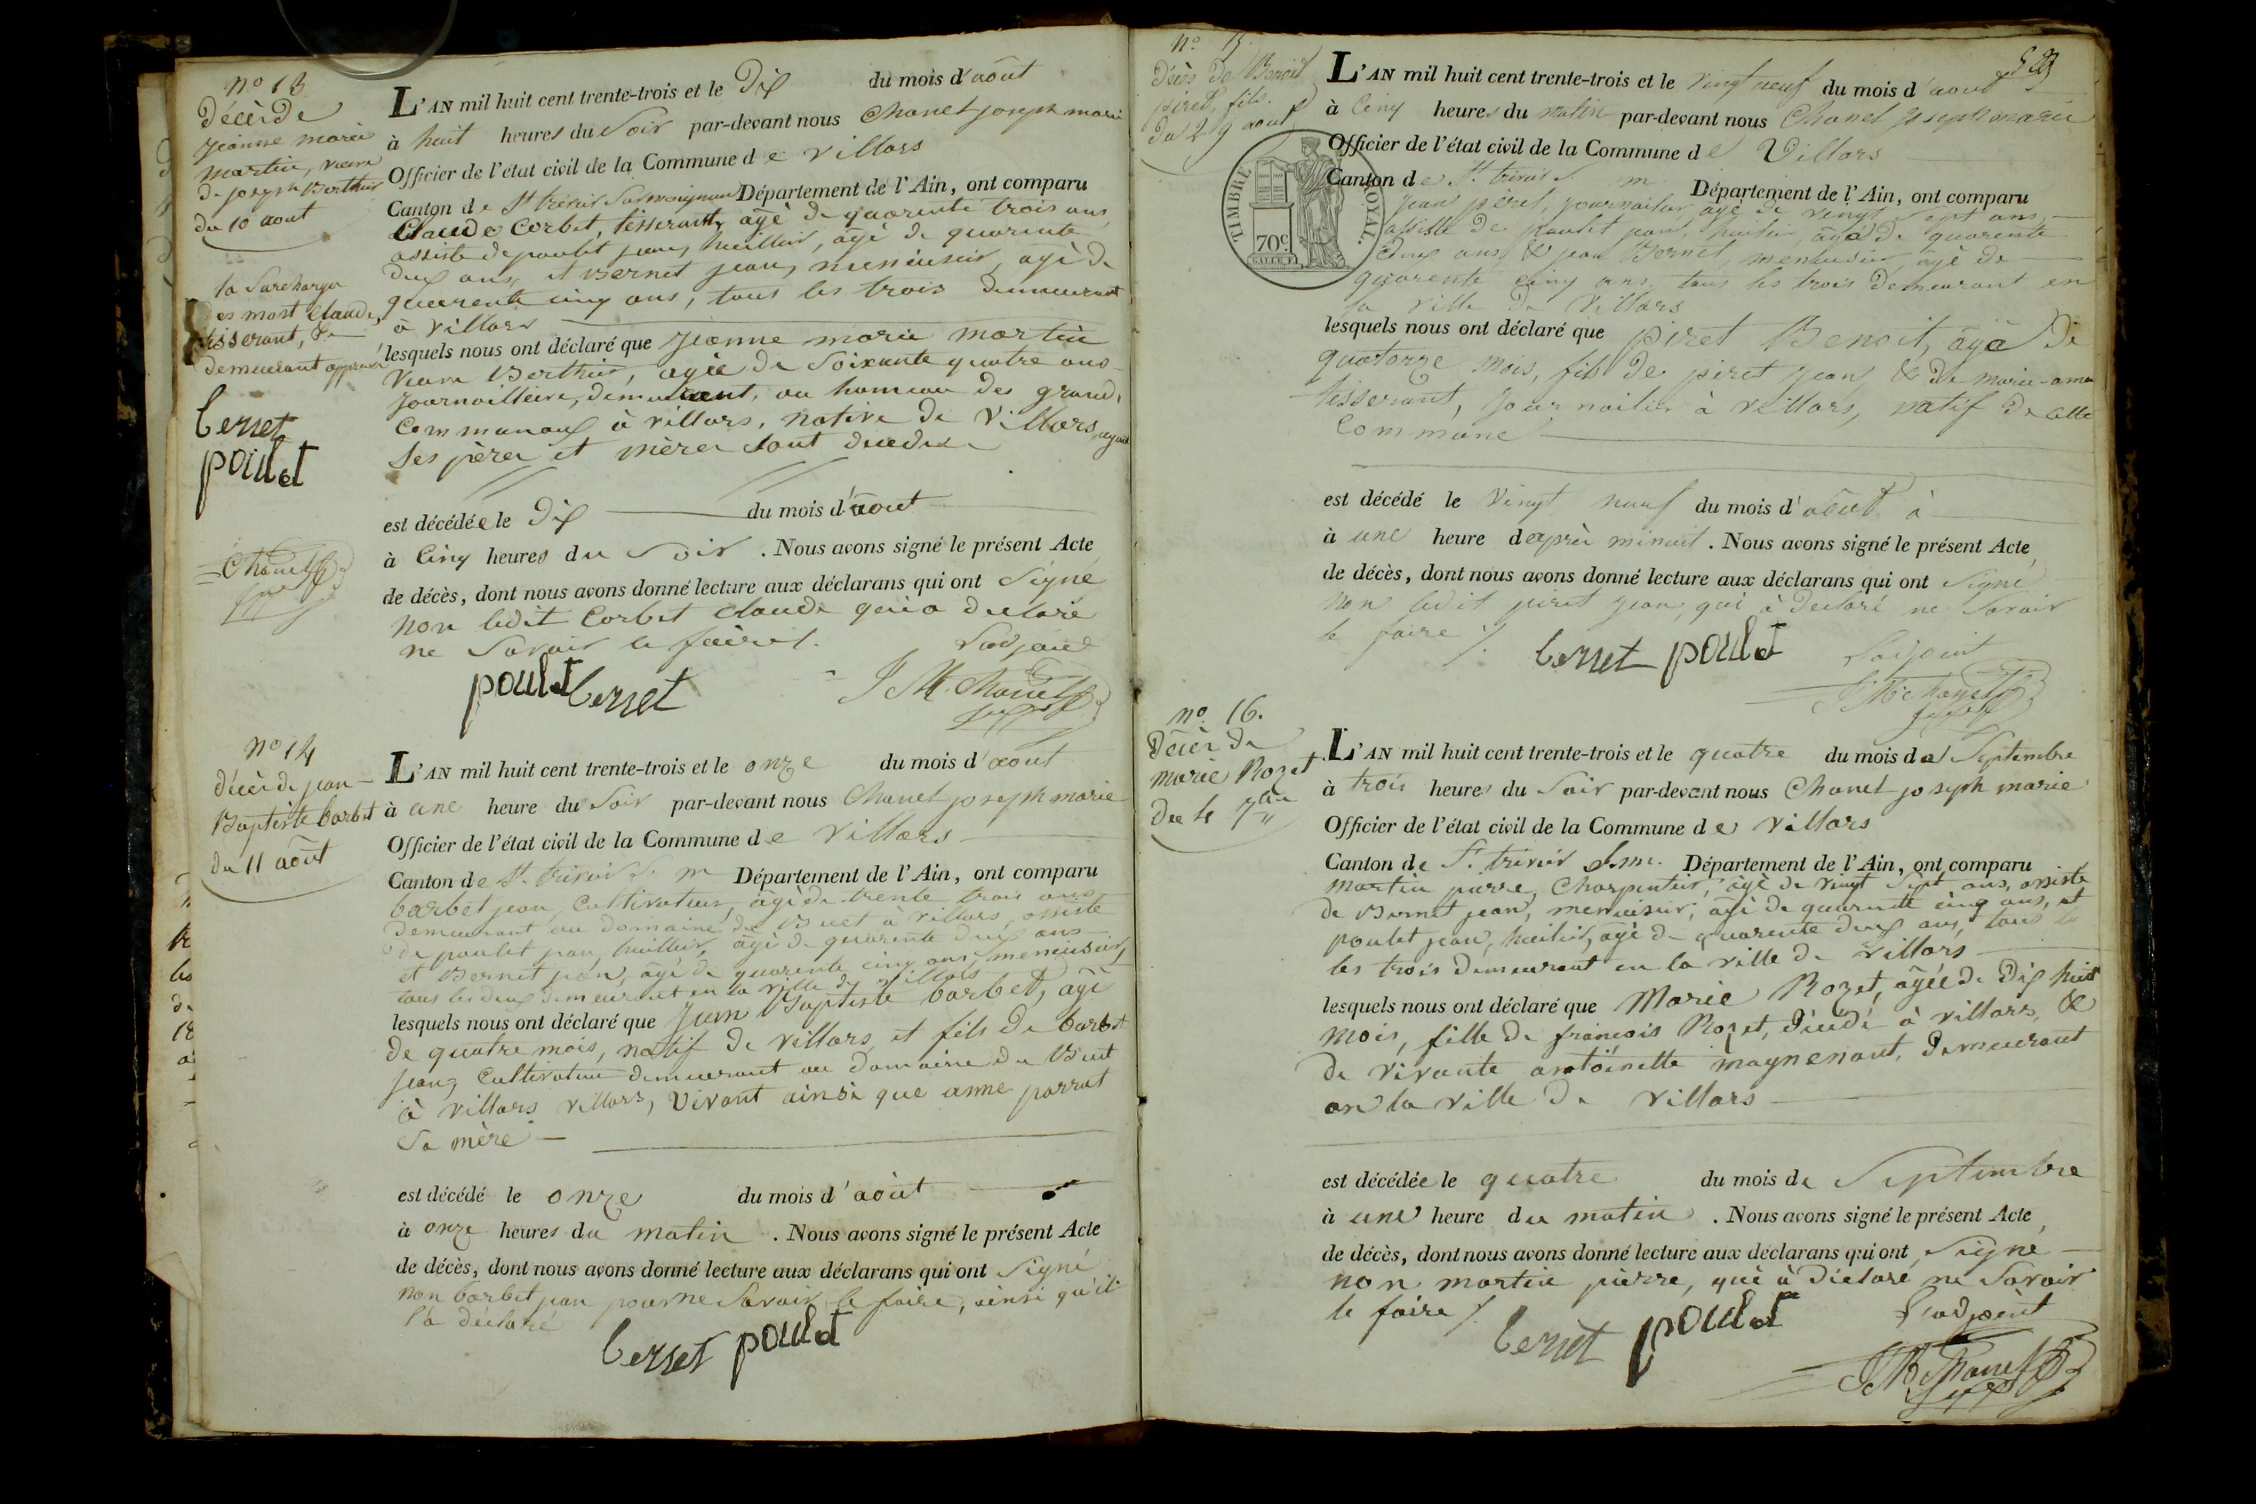 nº 13
Décès de
jeanne marie
martin, veuve
de joseph Berthier
du 10 aout
la Surcharger
es mort Claude,
tisserant, &
demeurant approuvé
berset
poulet
Chanel
L'AN mil huit cent trente-trois et le Dix du mois d'août
à huit heures du Soir par-devant nous Chanel joseph marie
Officier de l'état civil de la Commune de villars
Canton de St trivier Département de l'Ain, ont comparu
Claude Corbet, tisserant, âgé de quarente trois ans,
assisté de poulet jean, huillier, âgé de quarente
deux ans, et Bernet jean, menuisier, âgé de
quarente cinq ans, tous les trois demeurant
à villars
lesquels nous ont déclaré que jeanne marie martin
veuve Berthier, agée de Soixante quatre ans
journaillière, demeurant, au hameau des grand,
Communaux à villars, native de Villars, ayant
Ses pères et mères sont décédés
est décédée le Dix du mois d'aout
à Cinq heures du Soir. Nous avons signé le présent Acte
de décès, dont nous avons donné lecture aux déclarans qui ont Signé
non ledit Corbet Claude qui a declaré
ne Savoir le faire ./.
L'adjoint
poulet berset J M. Chanel
nº 14
décès de jean
Baptiste barbet
du 11 août
L'AN mil huit cent trente-trois et le onze du mois d'aout
à une heure du Soir par-devant nous Chanel joseph marie
Officier de l'état civil de la Commune de villars
Canton de St. trivier S. m Département de l'Ain, ont comparu
barbet jean, Cultivateur, âgé de trente trois ans
demeurant au domaine du Buet à villars, assisté
de poulet jean, huillier, âgé de quarente deux ans
et Bernet jean, âgé de quarente cinq ans, menuisier,
tous les deux demeurant en la ville de villars
lesquels nous ont déclaré que jean Baptiste barbet, âgé
de quatre mois, natif de villars, et fils de barbet
jean, Cultivateur demeurant au domaine du Buet
à villars villars, vivant ainsi que anne parrat
Sa mère
est décédé le onze du mois d'août
à onze heures du matin. Nous avons signé le présent Acte
de décès, dont nous avons donné lecture aux déclarans qui ont Signé
non barbet jean pour ne Savoir le faire, ainsi qu'il
l'a déclaré
berset poulet
nº 15.
Décès de Benoit
piret, fils.
du 29 aout
L'AN mil huit cent trente-trois et le vingt neuf du mois d'aout
à Cinq heures du matin par-devant nous Chanel Joseph marie
Officier de l'état civil de la Commune de Villars
Canton de St. trivier S. m Département de l'Ain, ont comparu
TIMBRE ROYAL.
70c.
jean piret, journailier, agé de vingt Sept ans,
assisté de poulet jean, huilier, âgé de quarente
deux ans, & jean Bernet, menuisier, agé de
quarente cinq ans, tous les trois demeurant en
la ville de Villars
lesquels nous ont déclaré que piret Benoit, âgé de
quatorze mois, fils de piret jean & de marie-anne
tisserant, journailier à villars, natif de cette
Commune
est décédé le vingt neuf du mois d'aout à
à une heure d'après minuit. Nous avons signé le présent Acte
de décès, dont nous avons donné lecture aux déclarans qui ont Signé
non ledit piret jean, qui à declaré ne Savoir
le faire ./.
berset poulet L'adjoint
J M Chanel
nº 16.
Décès de
marie Rozet
du 4 7bre
L'AN mil huit cent trente-trois et le quatre du mois de Septembre
à trois heures du Soir par-devant nous Chanel joseph marie
Officier de l'état civil de la Commune de villars
Canton de St. trivier S. m. Département de l'Ain, ont comparu
martin pierre, Charpentier, âgé de vingt Sept ans, assisté
de Bernet jean, menuisier, âgé de quarente cinq ans, et
poulet jean, huilier, agé de quarente deux ans, tous
les trois demeurant en la ville de villars
lesquels nous ont déclaré que Marie Rozet, âgée de Dix huit
mois, fille de françois Rozet, décédé à villars, &
de vivante antoinette maynenant, Demeurant
en la ville de villars
est décédée le quatre du mois de Septembre
à une heure du matin. Nous avons signé le présent Acte
de décès, dont nous avons donné lecture aux déclarans qui ont Signé
non martin pierre, qui à déclaré ne Savoir
le faire ./.
L'adjoint
berset poulet
J M Chanel